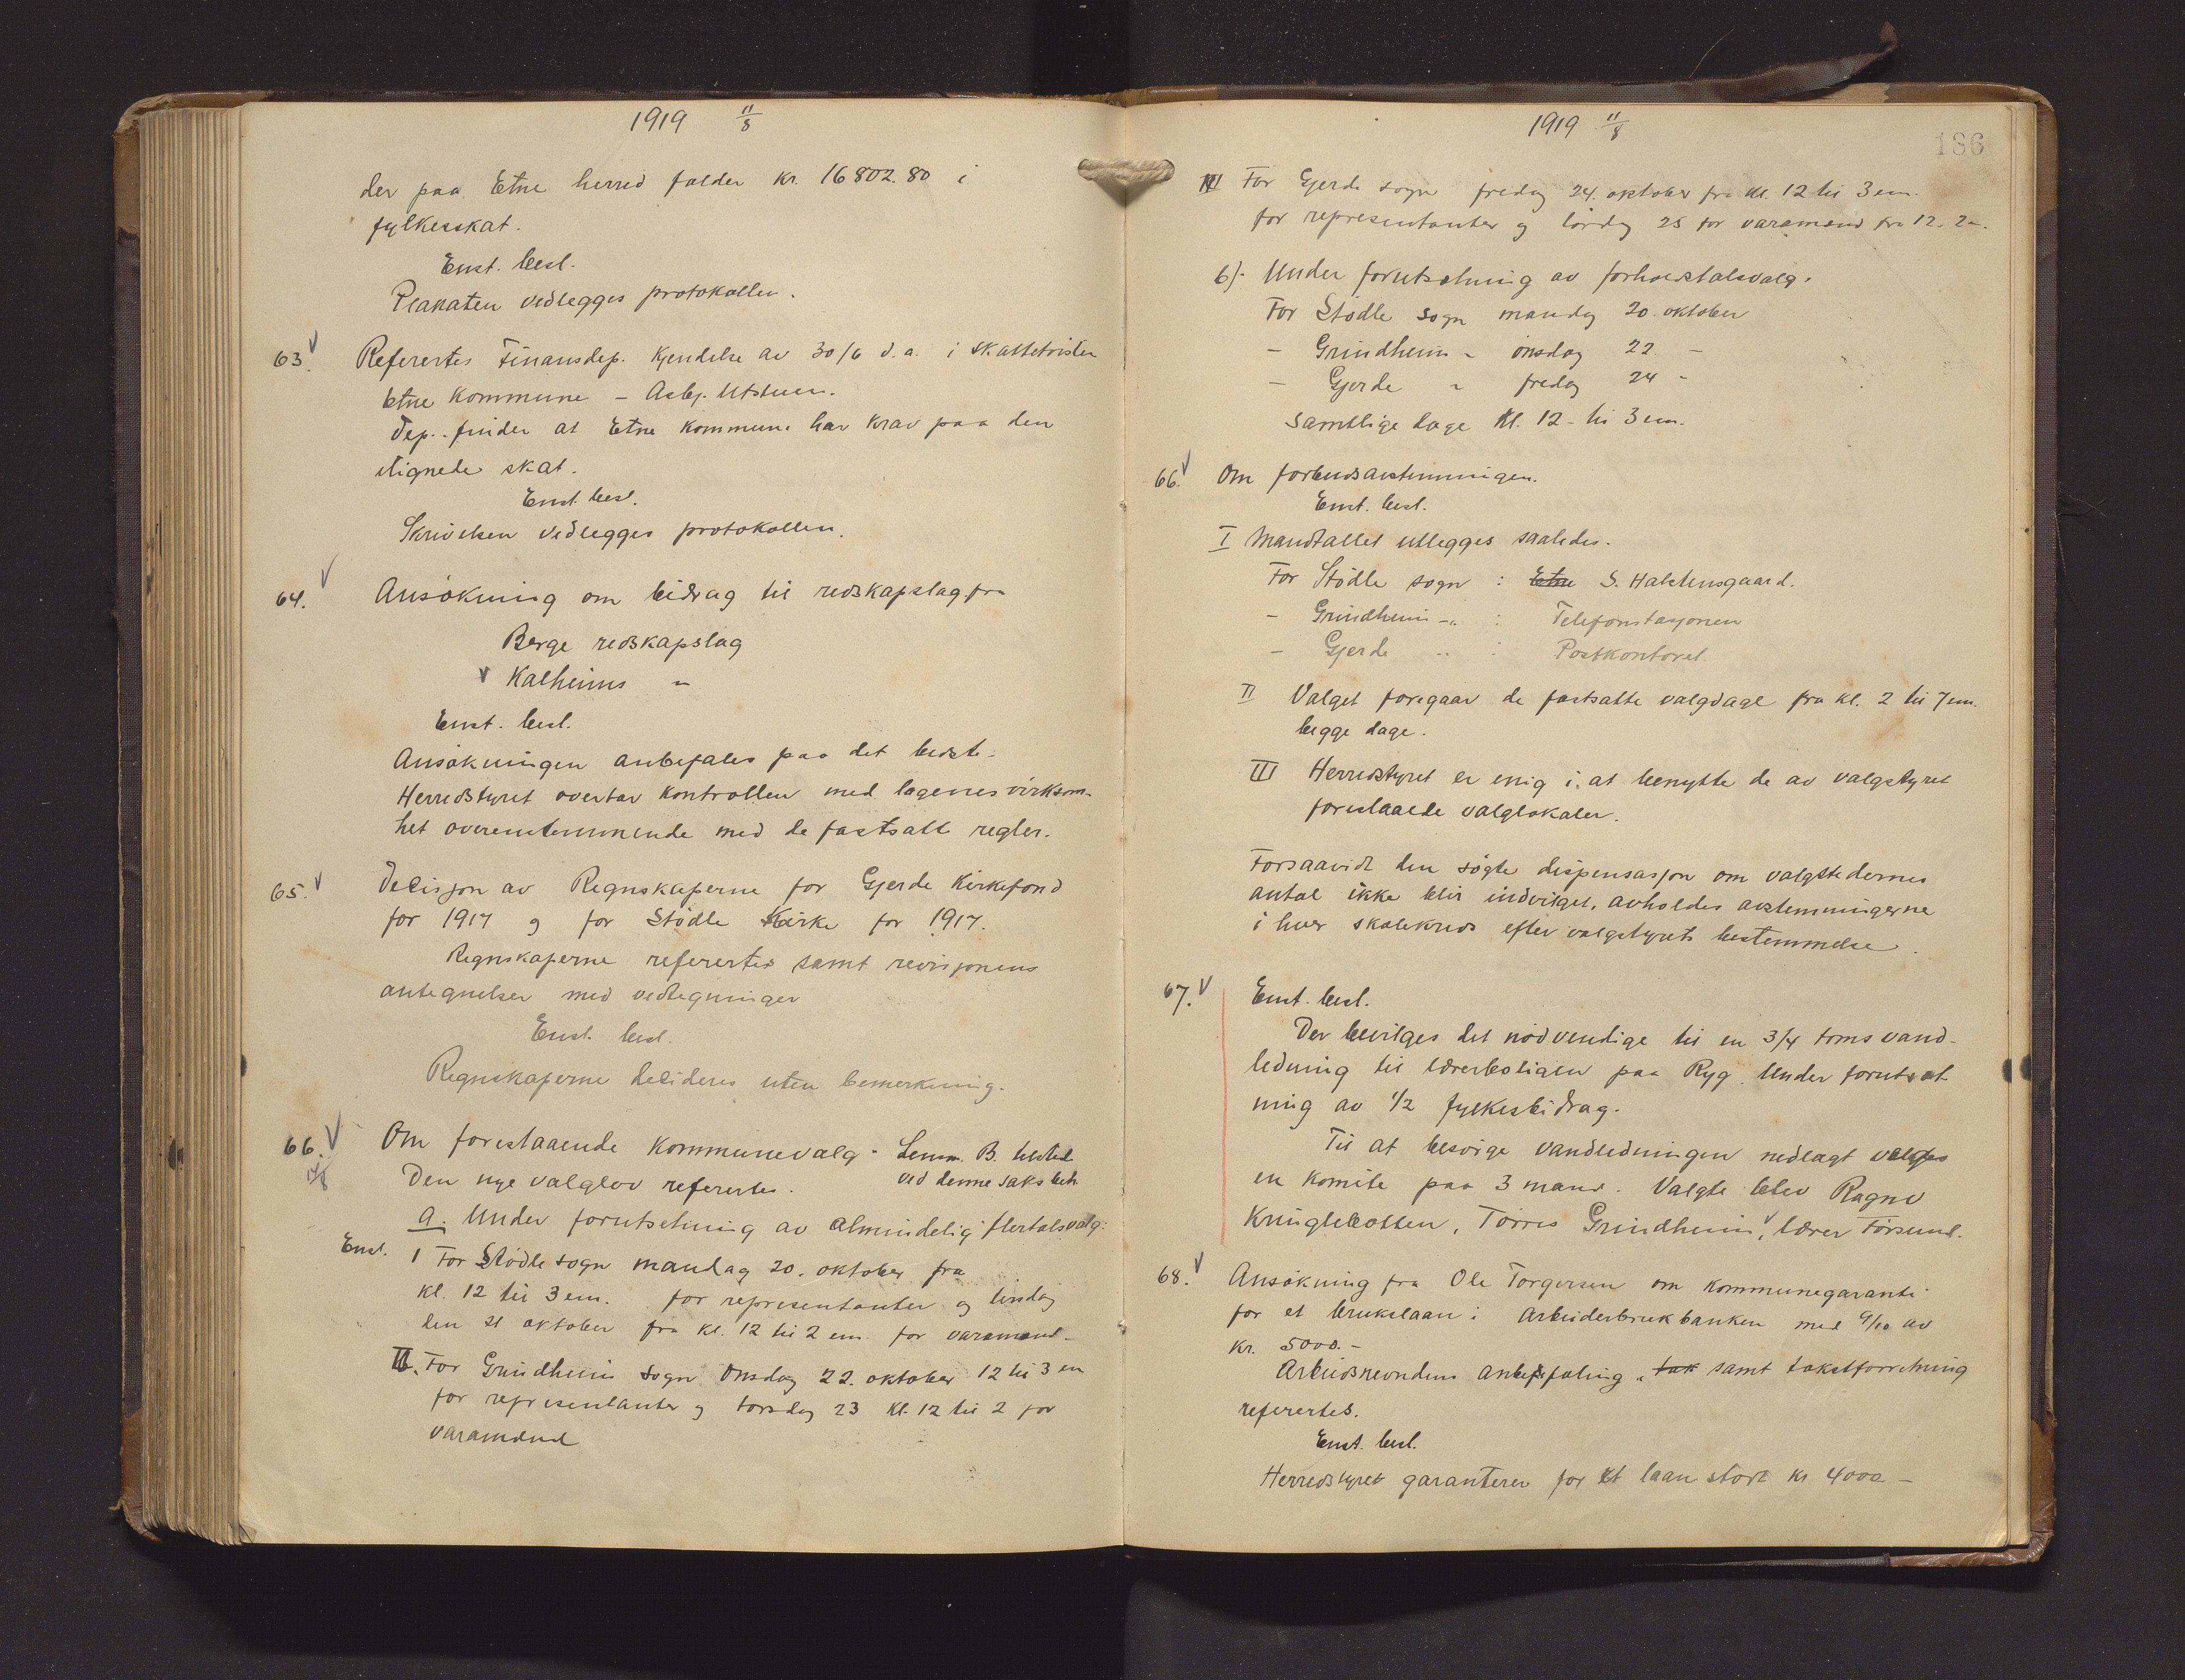 1919 11/8
der paa Etne herred falder kr. 16802.80 i
fylkesskat.
Enst. besl.
Plakaten vedlegges protokollen.
63. Referertes Finansdep. Kjendelse av 30/6 d.a. i skattetvisten
Etne kommune - Asbj. Utstuen.
Dep. finder at Etne kommune har krav paa den
utlignede skat.
Enst. besl.
Skrivelsen vedlegges protokollen.
64. Ansökning om bidrag til redskapslag fra
Berge redskapslag
Kalheims "
Enst. besl.
Ansökningen anbefales paa det bedste.
Herredstyret overtar kontrollen med lagenes virksom-
het overenstemmende med de fastsatte regler.
65. Decisjon av Regnskaperne for Gjerde Kirkefond
for 1917 og for Stödle Kirke for 1917.
Regnskaperne referertes samt revisjonens
antegnelser med vedtegninger
Enst. besl.
Regnskaperne decideres uten bemerkning.
66. Om forestaaende kommunevalg. Lensm. B.
14/8 Den nye valglov refertes. ved denne saks beh.
a. Under forutsetning av almindelig flertalsvalg:
Enst. I For Stödle sogn mandag 20. oktober fra
kl. 12 til 3 em. for representanter og tirsdag
den 21 oktober fra kl. 12 til 2 em. for varamænd.
II. For Grindheim sogn onsdag 22. oktober 12 til 3 em
for representanter og torsdag 23 kl. 12 til 2 for
varamænd
1919 11/8
186
III For Gjerde sogn fredag 24. oktober fra kl. 12 til 3 em.
for representanter og lördag 25 for varamænd fra 12-2 -.
b). Under forutsetning av forholdstalsvalg.
For Stödle sogn mandag 20. oktober
- Grindheim " onsdag 22 -
- Gjerde " fredag 24 -
samtlige dage kl. 12 - til 3 em.
66. Om forbudsavstemningen.
Enst. besl.
I Mandtallet utlegges saaledes.
For Stödle sogn : Etne S. Halstensgaard.
- Grindheim -"- : Telefonstasjonen
- Gjerde " : Postkontoret.
II Valget foregaar de fastsatte valgdage fra kl. 2 til 7 em.
begge dage.
III Herredstyret er enig i at benytte de av valgstyret
foreslaaede valglokaler.
Forsaavidt den sögte dispensasjon om valgstedernes
antal ikke blir indvilget, avholdes avstemningerne
i hver skolekreds efter valgstyrets bestemmelse.
67. Enst. besl.
Der bevilges det nödvendige til en 3/4 toms vand-
ledning til lærerboligen paa Ryg. Under forutsæt
ning av 1/2 fylkesbidrag.
Til at besörge vandledningen nedlagt velges
en komite paa 3 mand. Valgte blev Ragnv
Kringlebotten, Törres Grindheim, lærer Försund.
68. Ansökning fra Ole Torgersen om kommunegaranti
for et brukslaan i Arbeiderbrukbanken med 9/10 av
kr. 5000.-
Arbeidsnevndens anbefaling, tak samt takstforretning
refertes.
Enst. besl.
Herredstyret garanterer for et laan stort kr 4000 -